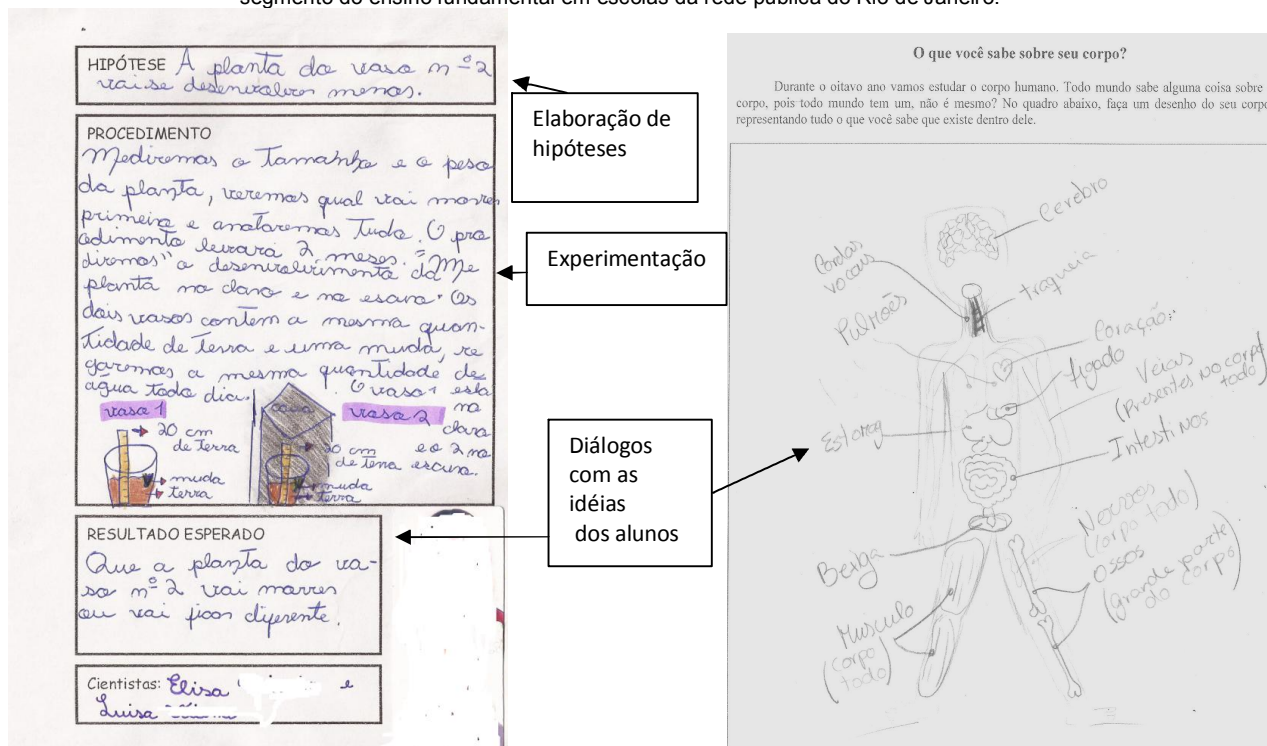 segmento do ensino fundamental em escolas da rede pública do Rio de Janeiro.
HIPÓTESE A planta do vaso nº 2
vai se desenvolver menos.
PROCEDIMENTO
Mediremos o Tamanho e o peso
da planta, veremos qual vai morrer
primeiro e anotaremos Tudo. O pro
cedimento levará 2 meses. "Me
diremos" o desenvolvimento da
planta no claro e no escuro. Os
dois vasos contem a mesma quan-
Tidade de Terra e uma muda, re
garemos a mesma quantidade de
água todo dia. O vaso 1 está
no
claro
e o 2 no
escuro.
vaso 1
20 cm
de terra
muda
terra
caixa
vaso 2
20 cm
de terra
muda
terra
RESULTADO ESPERADO
Que a planta do va-
so nº 2 vai morrer
ou vai ficar diferente.
Cientistas: Elisa e
Luisa
Elaboração de
hipóteses
Experimentação
Diálogos
com as
idéias
dos alunos
O que você sabe sobre seu corpo?
Durante o oitavo ano vamos estudar o corpo humano. Todo mundo sabe alguma coisa sobre
corpo, pois todo mundo tem um, não é mesmo? No quadro abaixo, faça um desenho do seu corpo
representando tudo o que você sabe que existe dentro dele.
Cerebro
Cordas
vocais
traqueia
Pulmões
Coração
figado
Veias
(Presentes no corpo
todo)
Estomag
Intestinos
Nervos
(corpo todo)
Bexiga
Ossos
(grande parte
do corpo)
Musculo
(corpo
todo)